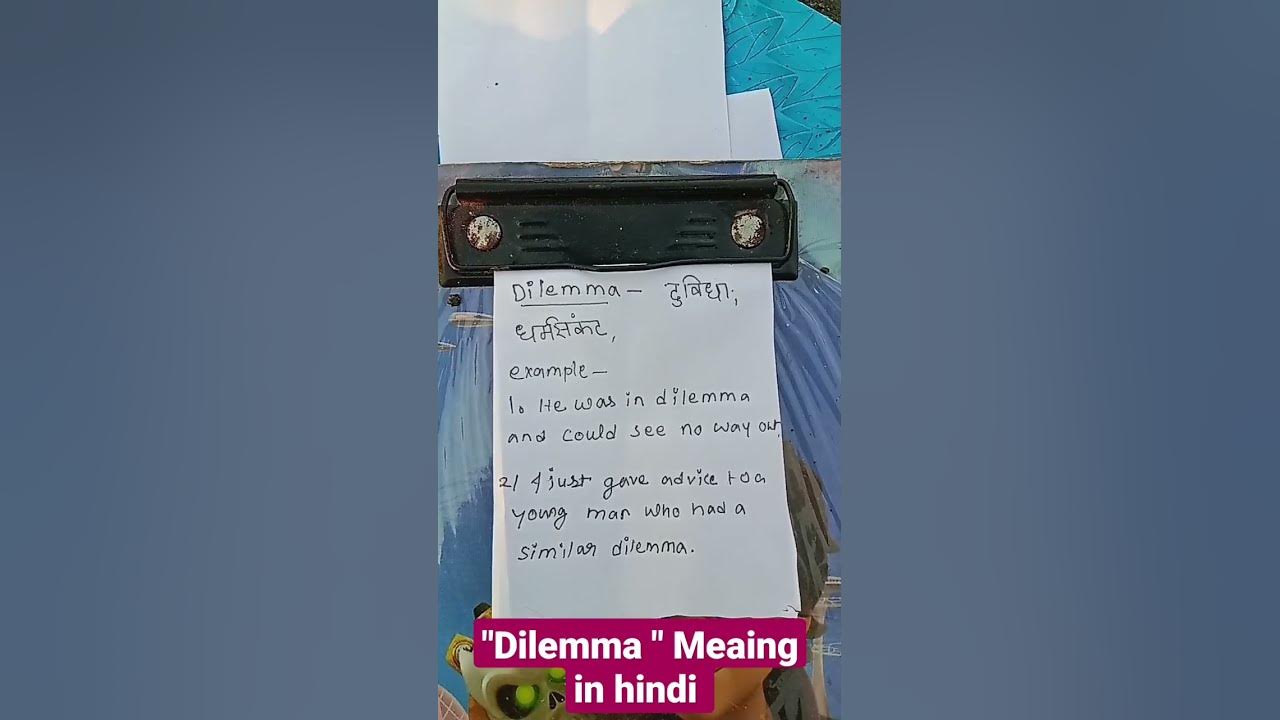 Dilemma – दुविधा;
धर्मसंकट,
example –
1. He was in dilemma
and could see no way out.
2) I just gave advice to a
young man who had a
similar dilemma.
"Dilemma " Meaing
in hindi